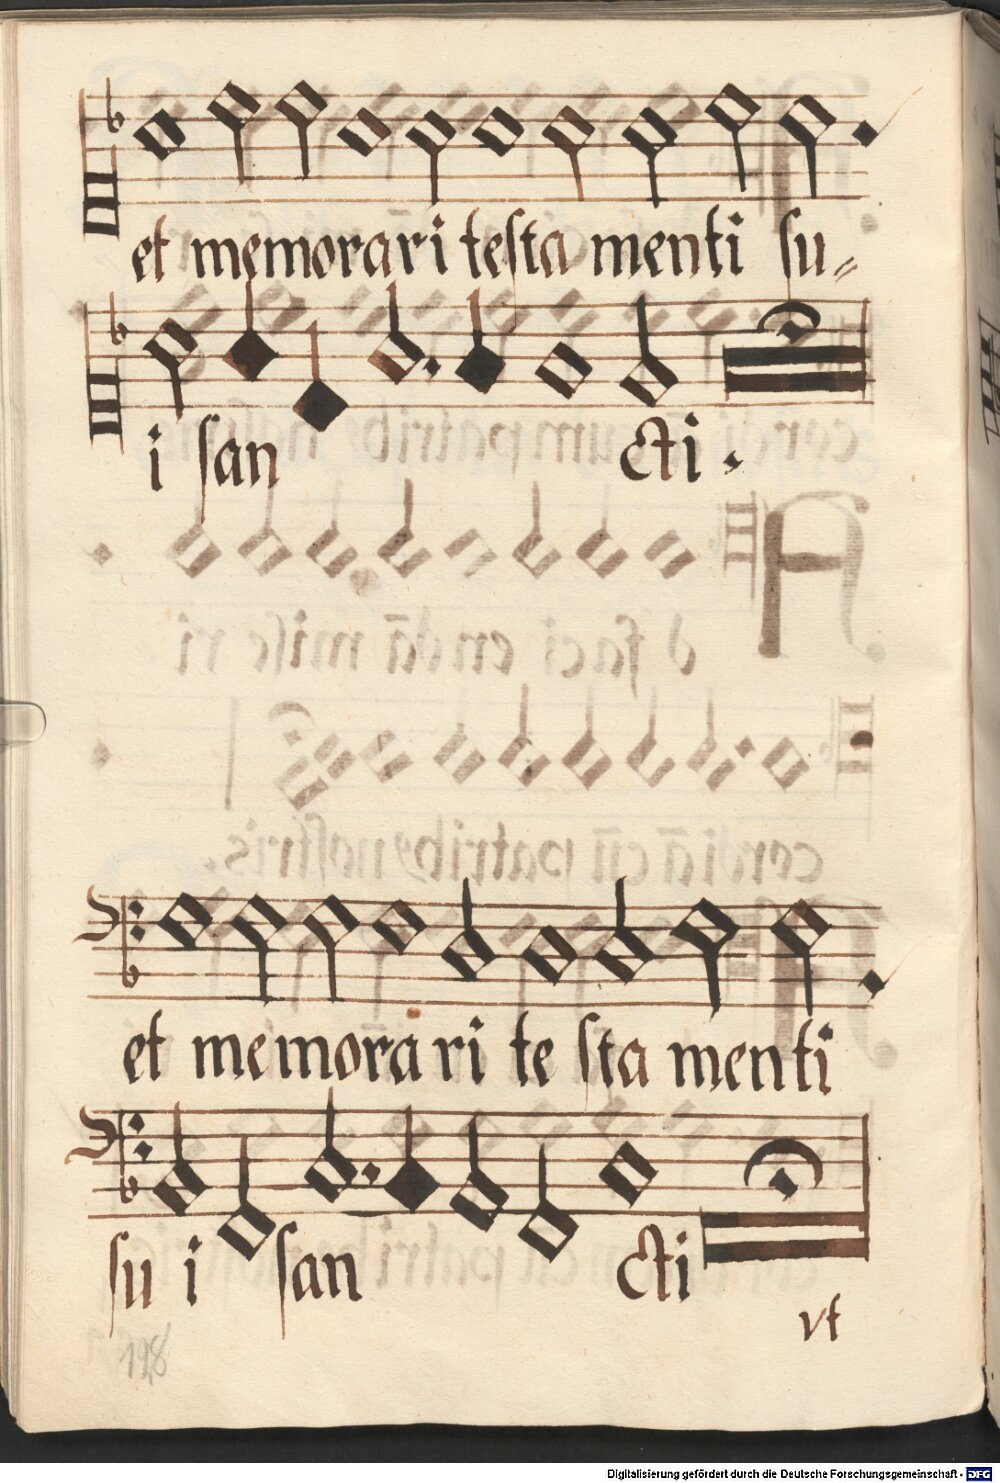 et memorari testa menti su⸗
i san cti.
et memora ri te sta menti
su i san cti
vt
198
Digitalisierung gefördert durch die Deutsche Forschungsgemeinschaft - DFG